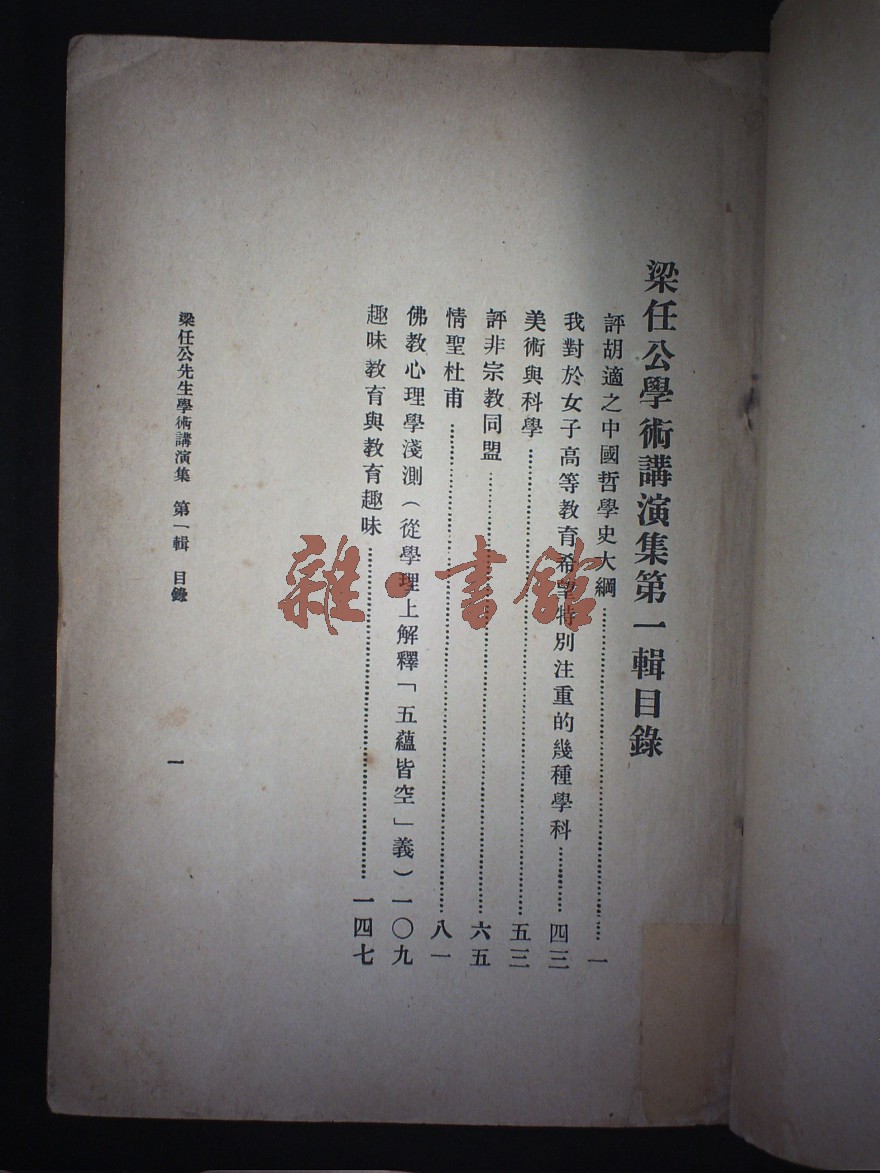 梁任公學術講演集第一輯目錄
評胡適之中國哲學史大綱……一
我對於女子高等教育希望特別注重的幾種學科……四三
美術與科學……五三
評非宗教同盟……六五
情聖杜甫……八一
佛教心理學淺測(從學理上解釋「五蘊皆空」義)一〇九
趣味教育與教育趣味……一四七
梁任公先生學術講演集 第一輯 目錄
一
雜·書館